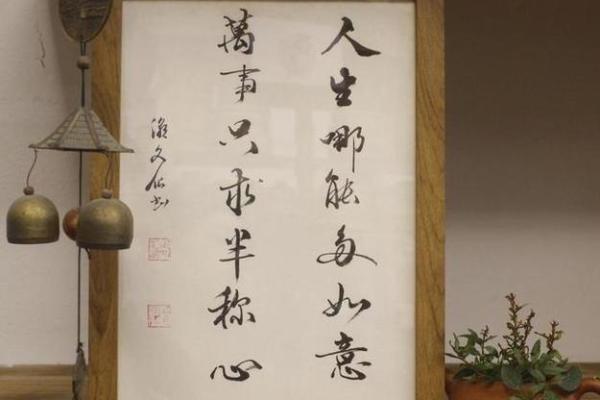 人生哪能多如意
萬事只求半称心